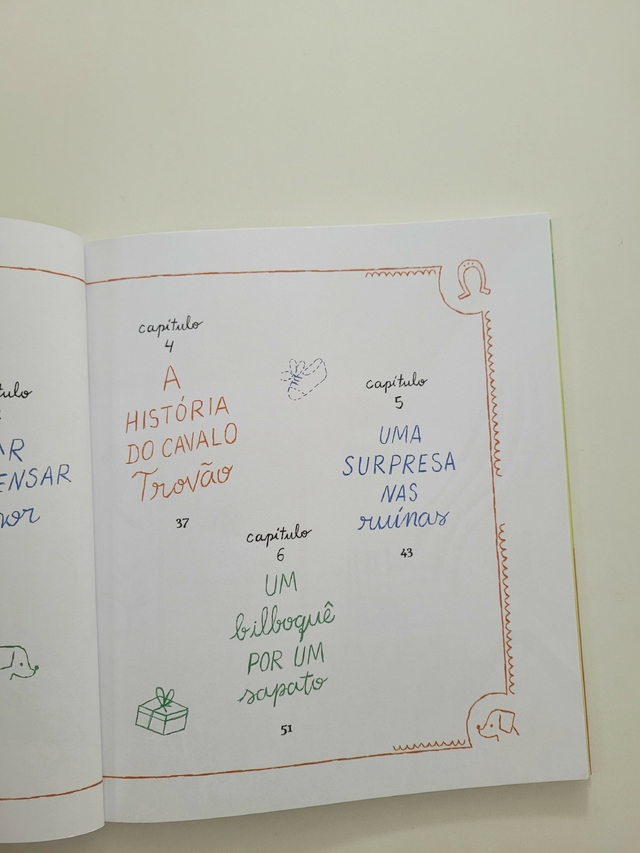 capítulo
4
A
HISTÓRIA
DO CAVALO
Trovão
37
capítulo
5
UMA
SURPRESA
NAS
ruínas
43
capítulo
6
UM
bilboquê
POR UM
sapato
51